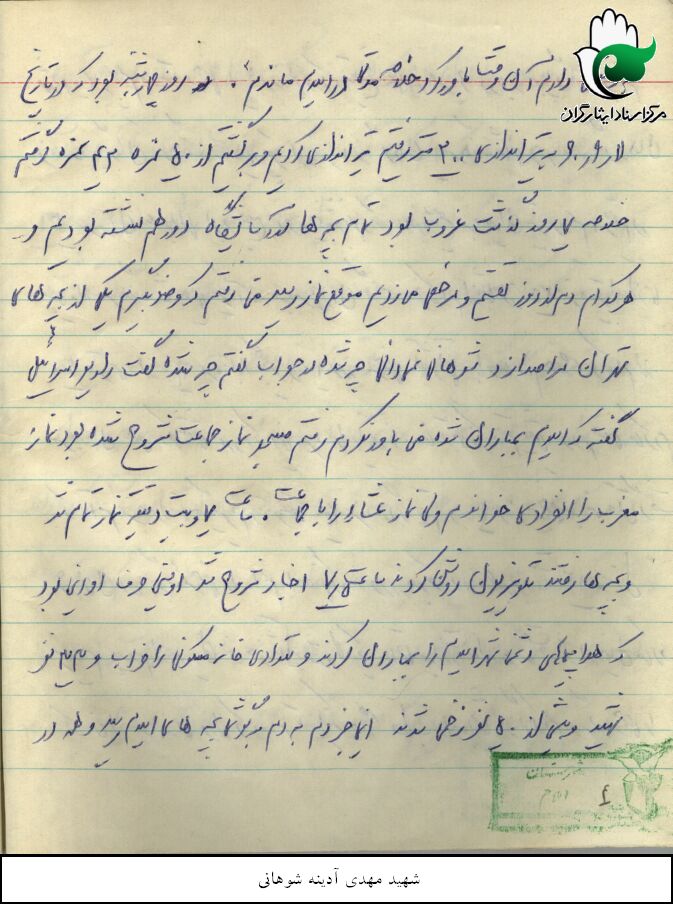 مرکز اسناد ایثارگران
دارم آن وقت باور کرد خلاصه موقتا در ایلام ماندم . روز چهارشنبه بود که در تاریخ
به تیراندازی ۳۰۰ متر رفتیم تیراندازی کردیم و برگشتیم از ۵۰ نمره ۳۲ نمره گرفتم
خلاصه یک روز گذشت غروب بود تمام بچه ها در آسایشگاه دور هم نشسته بودیم و
هر کدام دم از روز گفتیم و حرفی میزدیم موقع نماز رسید من رفتم که وضو بگیرم یکی از بچه های
تهران مرا صدا زد شوهانی نمیدانی چه شده در جواب گفتم چه شده گفت رادیو اسرائیل
گفته که ایلام بمباران شده من باور نکردم رفتم مسجد نماز جماعت شروع شده بود نماز
مغرب را انفرادی خواندم ولی نماز عشاء را با جماعت . ساعت و بیست دقیقه نماز تمام شد
و بچه ها رفتند تلویزیون روشن کردند ساعت اخبار شروع شد اولین حرف او این بود
که هواپیماهای دشمن شهر ایلام را بمباران کردند و تعدادی خانه مسکونی را خراب و نفر
شهید و بیش از نفر زخمی شدند این خبر دم به دم به گوش بچه های ایلام رسید و همه در
شهرستان
ایلام
۴
شهید مهدی آدینه شوهانی